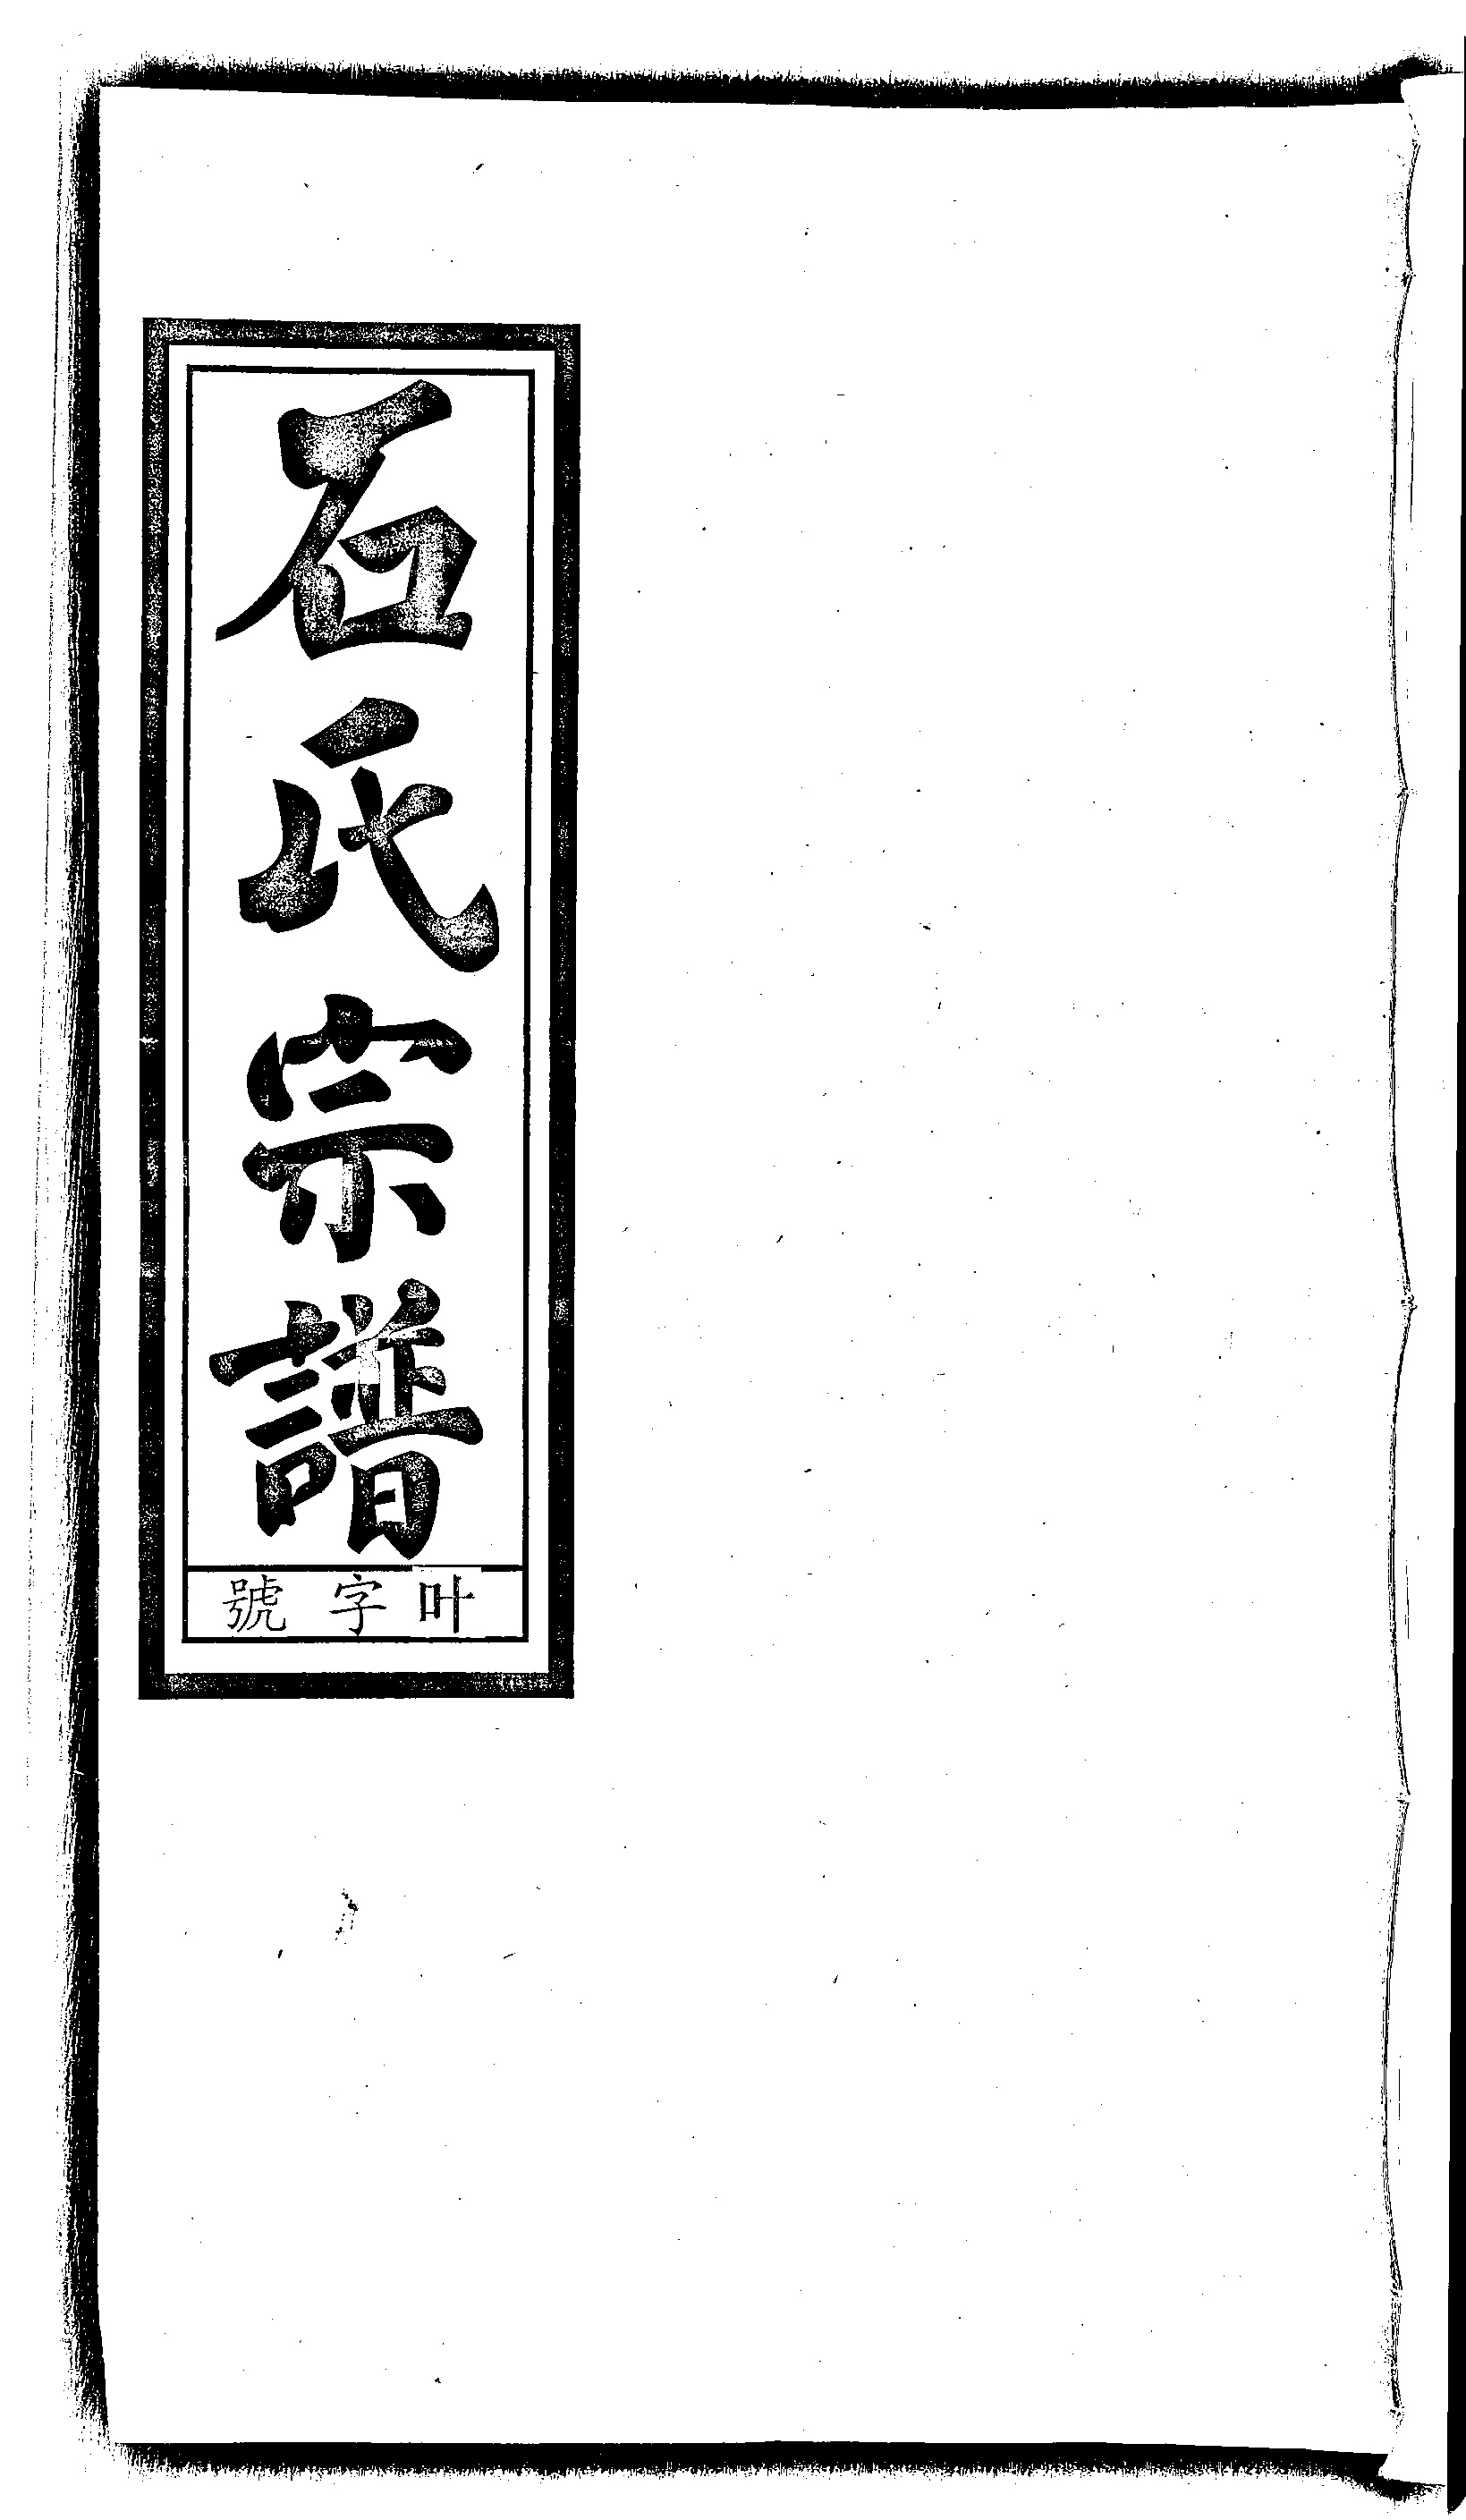 石氏宗譜
叶字號